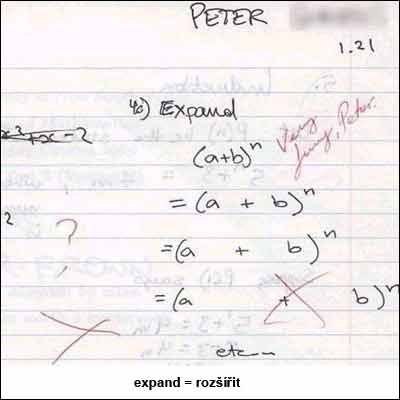 PETER
1.21
4c) Expand
x³+x-2
(a+b)ⁿ
Very funny, Peter.
= (a + b)ⁿ
2
?
= (a + b)ⁿ
= (a + b)ⁿ
etc...
expand = rozšířit